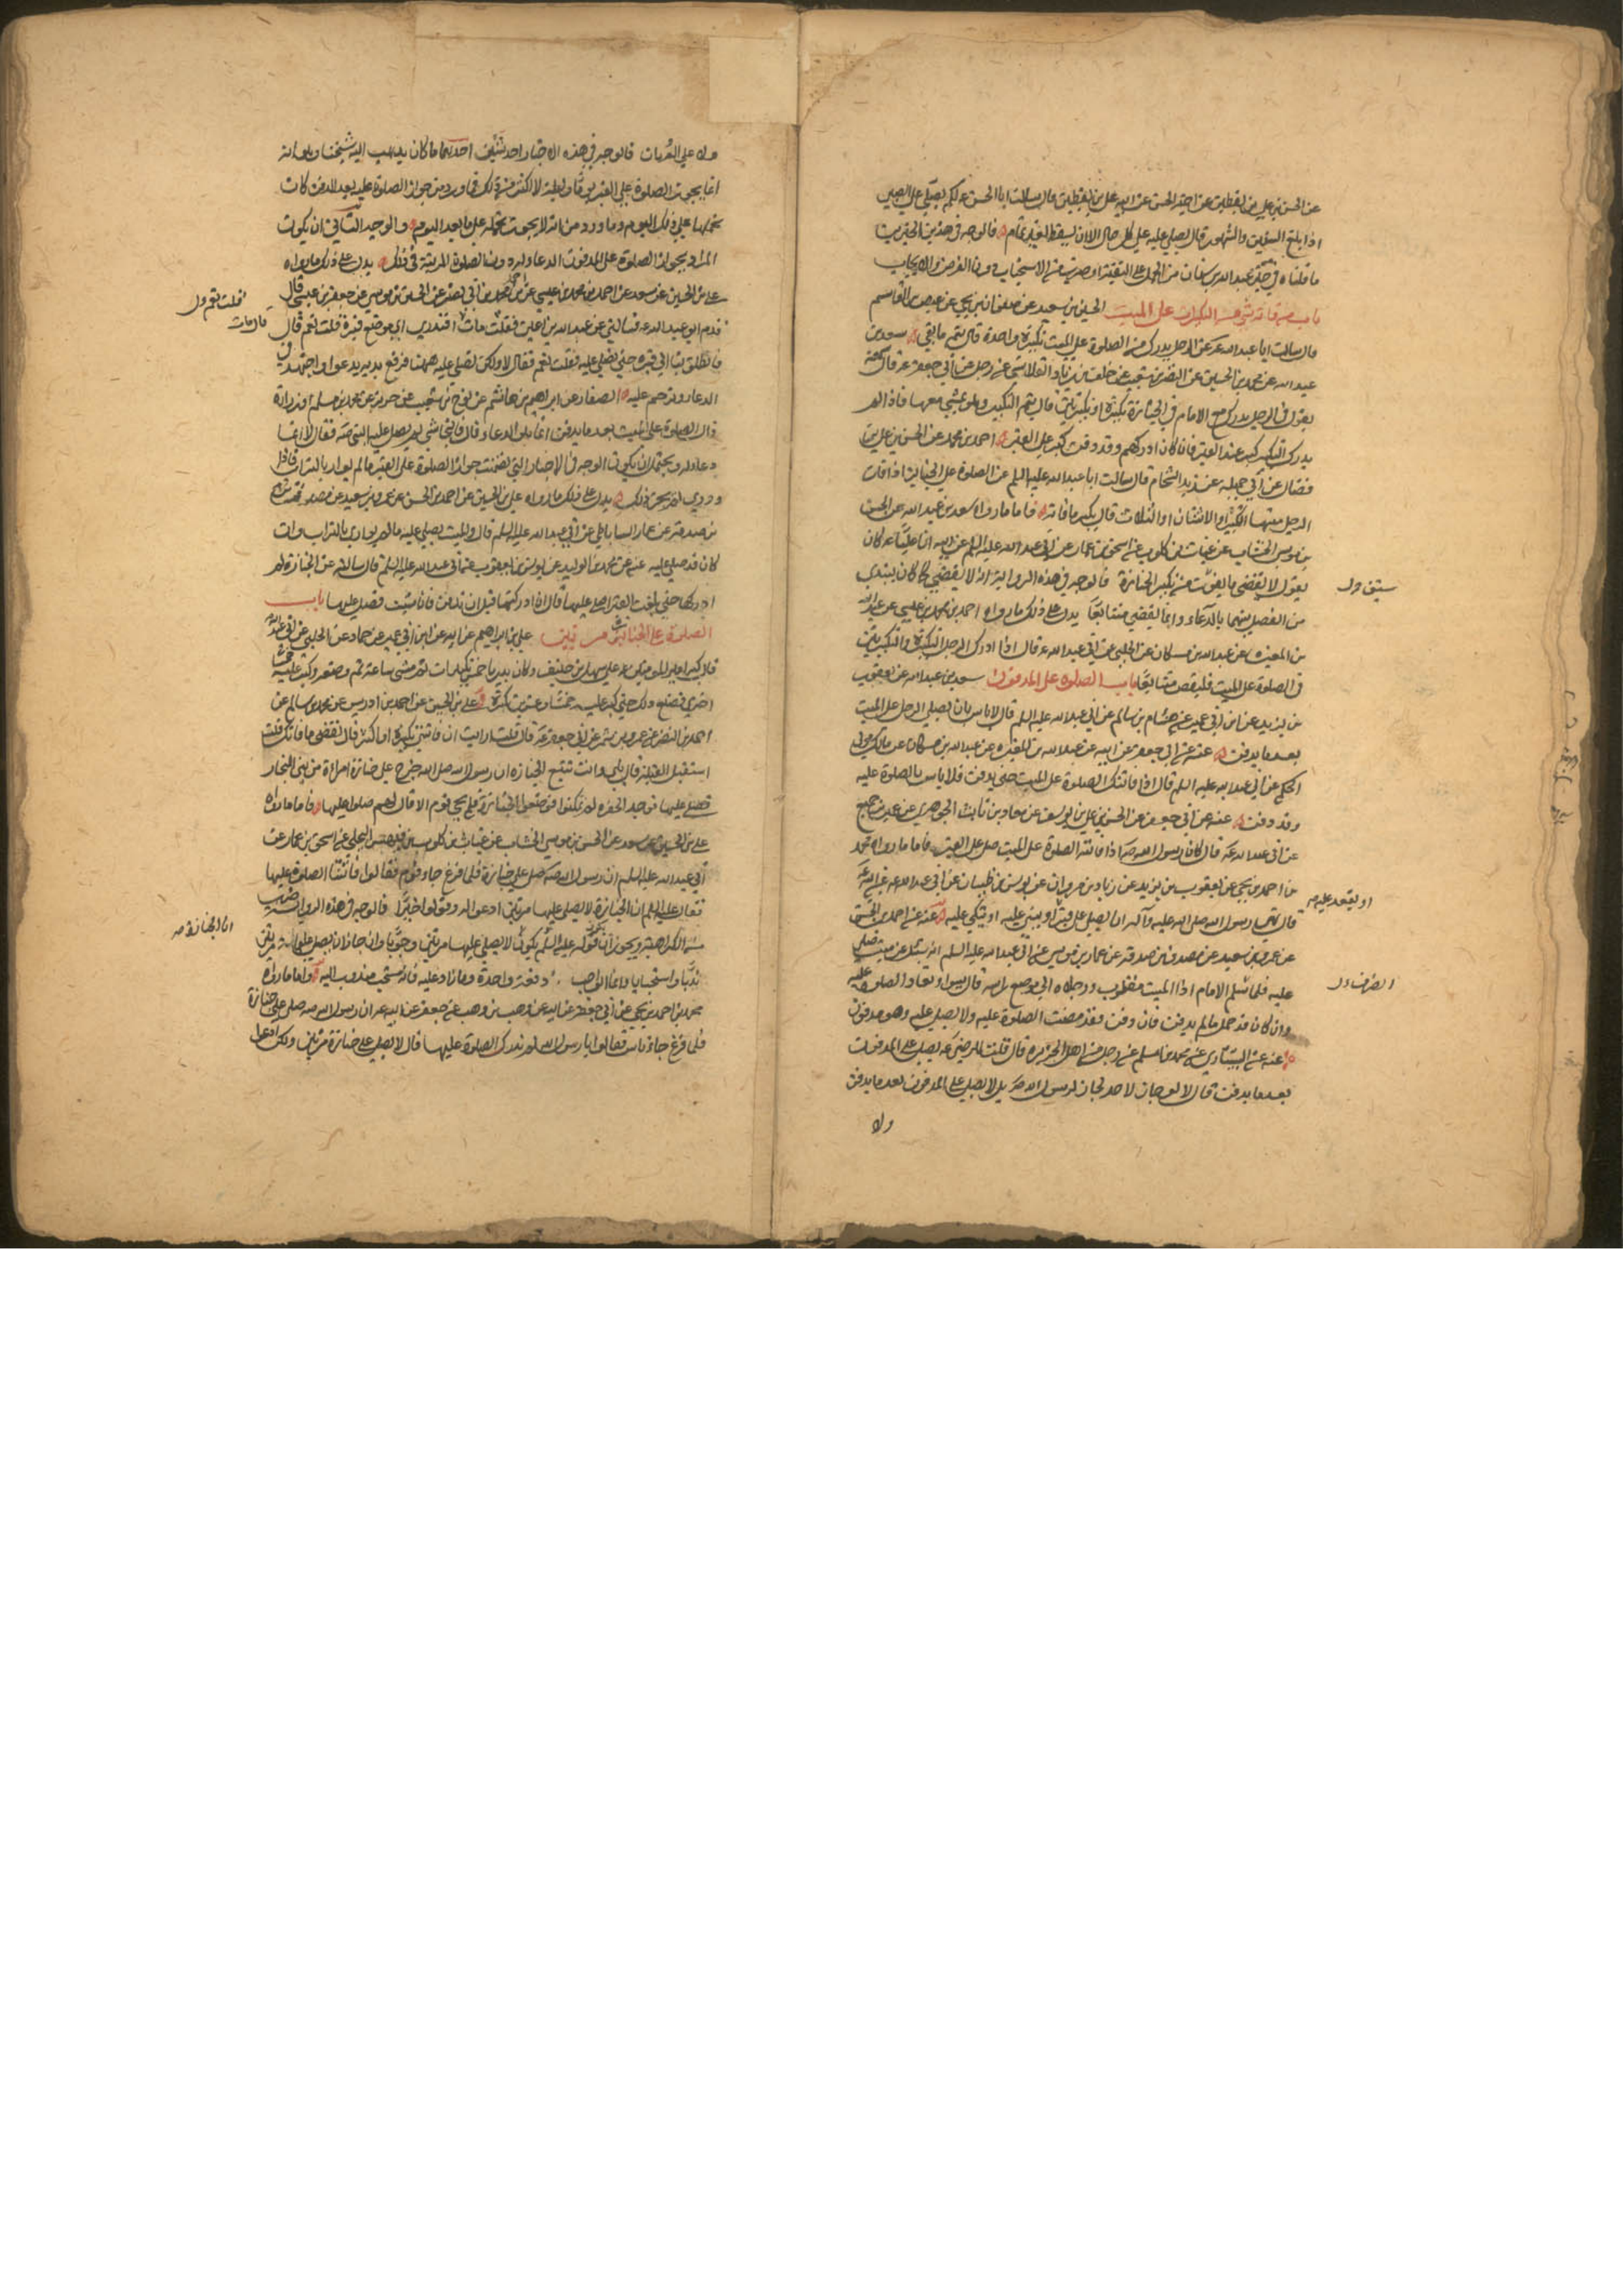 عن الحسن بن علي بن يقطين عن اخيه الحسين عن ابيه علي بن يقطين قال سالت ابا الحسن ع لكم يصلى على الصبي
اذا بلغ السنين والشهور قال يصلى عليه على كل حال الا ان يسقط لغير تمام فالوجه في هذين الخبرين
ما قلناه في خبر عبد الله بن سنان من الحمل على التقية او ضرب من الاستحباب دون الفرض والايجاب
باب من فاته شي من التكبيرات على الميت الحسين بن سعيد عن صفوان بن يحيى عن عيص بن القاسم
قال سالت ابا عبد الله ع عن الرجل يدرك من الصلوة على الميت تكبيرة واحدة قال يتم ما بقي سعد بن
عبد الله عن محمد بن الحسين عن النضر بن شعيب عن خلف بن زياد القلانسي عن رجل عن ابي جعفر ع قال سمعته
يقول في الرجل يدرك مع الامام في الجنازة تكبيرة او تكبيرتين قال يتم التكبير وهو يمشي معها فاذا لم
يدرك التكبير كبر عند القبر فان كان ادركهم وقد دفن كبر على القبر احمد بن محمد عن الحسن بن علي بن
فضال عن ابي جميلة عن زيد الشحام قال سالت ابا عبد الله عليه السلم عن الصلوة على الجنايز اذا فات
الرجل منها التكبيرة او الاثنتان او الثلاث قال يكبر ما فاته فاما ما رواه سعد بن عبد الله عن الحسن
بن موسى الخشاب عن غياث بن كلوب عن اسحق بن عمار عن ابي عبد الله عليه السلم عن ابيه ان عليا ع كان
يقول لا يقضى ما يفوت من تكبير الجنازة فالوجه في هذه الرواية انه لا يقضى كما كان يبتدي
سبق ول
من الفصل بينهما بالدعاء وانما يقضي متتابعا يدل على ذلك ما رواه احمد بن محمد بن عيسى عن عبد الله
بن المغيرة عن عبد الله بن مسكان عن الحلبي عن ابي عبد الله ع قال اذا ادرك الرجل التكبيرة والتكبيرتين
في الصلوة على الميت فليقض متتابعا باب الصلوة على المدفون سعد بن عبد الله عن يعقوب
بن يزيد عن ابن ابي عمير عن هشام بن سالم عن ابي عبد الله عليه السلم قال لا باس بان يصلى الرجل على الميت
بعد ما يدفن عنه عن ابي جعفر عن ابيه عن عبد الله بن المغيرة عن عبد الله بن مسكان عن مالك مولى
الحكم عن ابي عبد الله عليه السلم قال اذا فاتتك الصلوة على الميت حتى يدفن فلا باس بالصلوة عليه
وقد دفن عنه عن ابي جعفر عن الحسن بن علي بن يوسف عن معاذ بن ثابت الجوهري عن عمرو بن جميع
عن ابي عبد الله ع قال كان رسول الله ص اذا فاتته الصلوة على الميت صلى على القبر فاما ما رواه محمد
بن احمد بن يحيى عن يعقوب بن يزيد عن زياد بن مروان عن يونس بن ظبيان عن ابي عبد الله ع عن ابيه ع
او يقعد عليه ص
قال نهى رسول الله صلى الله عليه وآله ان يصلى على قبر او يبنى عليه او يتكى عليه عنه عن احمد بن الحسن
عن عمرو بن سعيد عن مصدق بن صدقة عن عمار بن موسى عن ابي عبد الله عليه السلم انه سئل عن ميت صلى
عليه فلما سلم الامام اذا الميت مقلوب ورجلاه الى موضع راسه قال يسوى وتعاد الصلوة عليه
وان كان قد حمل ما لم يدفن فان دفن فقد مضت الصلوة عليه ولا يصلى عليه وهو مدفون
عنه عن السياري عن محمد بن اسلم عن رجل من اهل الجزيرة قال قلت للرضي ع يصلى على المدفون
بعد ما يدفن قال لا لو جاز لاحد لجاز لرسول الله ص بل لا يصلى على المدفون بعد ما يدفن
ولا
ولا على العريان فالوجه في هذه الاخبار احد شيئين احدهما ما كان يذهب اليه شيخنا وهو انه
انما يجوز الصلوة على القبر يوما وليلة لا اكثر من ذلك فما ورد من جواز الصلوة عليه بعد الدفن كان
نحملها على ذلك اليوم وما ورد من انه لا يجوز نحمله على ما بعد اليوم والوجه الثاني ان يكون
المراد بجواز الصلوة على المدفون الدعاء له دون الصلوة المرتبة في ذلك يدل على ذلك ما رواه
علي بن الحسين عن سعد عن احمد بن محمد بن عيسى عن احمد بن محمد بن ابي نصر عن الحسين بن موسى عن جعفر بن عيسى قال
قدم ابو عبد الله ع فسالني عن عبد الله بن اعين فقلت مات افتدري اي موضع قبره قلت نعم قال
فانطلق بنا الى قبره حتى نصلي عليه فقلت نعم فقال لا ولكن نصلي عليه ههنا فرفع يديه يدعو واجتهد في
الدعاء وترحم عليه الصفار عن ابراهيم بن هاشم عن نوح بن شعيب عن حريز عن محمد بن مسلم او زرارة
قال الصلوة على الميت بعد ما يدفن انما هو الدعاء قال فالنجاشي لم يصل عليه النبي ص فقال لا انما
دعا له ويحتمل ان يكون الوجه في الاخبار التي تضمنت جواز الصلوة على القبر ما لم يوار بالتراب فاذا
ووري لم يجز ذلك يدل على ذلك ما رواه علي بن الحسين عن احمد بن الحسن عن عمرو بن سعيد عن مصدق
بن صدقة عن عمار الساباطي عن ابي عبد الله عليه السلم قال والميت يصلى عليه ما لم يوارى بالتراب وان
كان قد صلي عليه عنه عن محمد بن الوليد عن يونس بن يعقوب عن ابي عبد الله عليه السلم قال سالته عن الجنازة لم
ادركها حتى بلغت القبر اصلي عليها قال اذا ادركتها قبل ان تدفن فان شئت فصل عليها باب
الصلوة على الجنازة مرتين علي بن ابراهيم عن ابيه عن ابن ابي عمير عن حماد عن الحلبي عن ابي عبد الله
قال كبر امير المومنين ع على سهل بن حنيف وكان بدريا خمس تكبيرات ثم مشى ساعة ثم وضعه وكبر عليه خمسة
اخرى فصنع ذلك حتى كبر عليه خمسا وعشرين تكبيرة علي بن الحسين عن احمد بن ادريس عن محمد بن سالم عن
احمد بن النضر عن عمرو بن شمر عن ابي جعفر ع قال قلت ارايت ان فاتتني تكبيرة او اكثر قال تقضي ما فاتك قلت
استقبل القبلة قال بلى وانت تتبع الجنازة ان رسول الله صلى الله خرج على جنازة امراة من بني النجار
فصلى عليها فوجد الحفرة لم تمكنوا فوضعوا الجنازة فلم يجي قوم الا قال لهم صلوا عليها فاما ما رواه
علي بن الحسين عن سعد عن الحسن بن موسى الخشاب عن غياث بن كلوب بن فيهس البجلي عن اسحق بن عمار عن
ابي عبد الله عليه السلم ان رسول الله ص صلى على جنازة فلما فرغ جاء قوم فقالوا فاتتنا الصلوة عليها
فقال عليه السلم ان الجنازة لا يصلى عليها مرتين ادعوا له وقولوا خيرا فالوجه في هذه الرواية ضرب
من الكراهية ويجوز ان يكون قوله عليه السلم لا يصلى عليها مرتين وجوبا وان جاز ان يصلى عليها مرتين
ندبا واستحبابا وانما الواجب دفعة واحدة وما زاد عليه فانه مستحب مندوب اليه واما ما رواه
محمد بن احمد بن يحيى عن ابي جعفر عن ابيه عن وهب بن وهب عن جعفر عن ابيه ع ان رسول الله ص صلى على جنازة
فلما فرغ جاءه ناس فقالوا يا رسول الله لم ندرك الصلوة عليها فقال لا يصلى على جنازة مرتين ولكن ادعوا